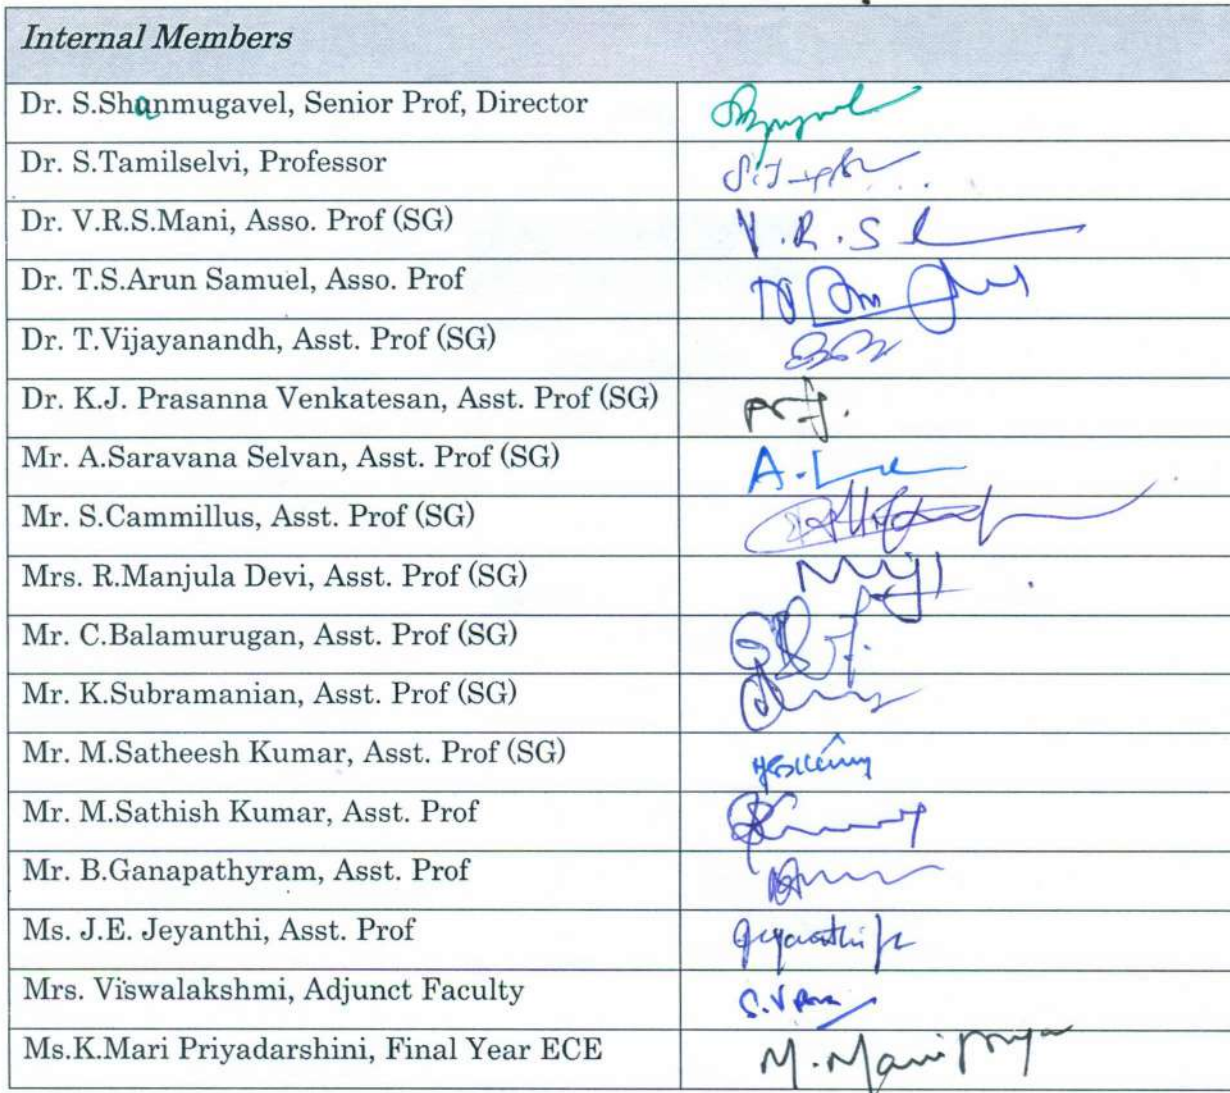 Internal Members
Dr. S.Shanmugavel, Senior Prof, Director
Dr. S.Tamilselvi, Professor
Dr. V.R.S.Mani, Asso. Prof (SG)
V.R.S
Dr. T.S.Arun Samuel, Asso. Prof
Dr. T.Vijayanandh, Asst. Prof (SG)
Dr. K.J. Prasanna Venkatesan, Asst. Prof (SG)
Mr. A.Saravana Selvan, Asst. Prof (SG)
Mr. S.Cammillus, Asst. Prof (SG)
Mrs. R.Manjula Devi, Asst. Prof (SG)
Mr. C.Balamurugan, Asst. Prof (SG)
Mr. K.Subramanian, Asst. Prof (SG)
Mr. M.Satheesh Kumar, Asst. Prof (SG)
Mr. M.Sathish Kumar, Asst. Prof
Mr. B.Ganapathyram, Asst. Prof
Ms. J.E. Jeyanthi, Asst. Prof
Mrs. Viswalakshmi, Adjunct Faculty
Ms.K.Mari Priyadarshini, Final Year ECE